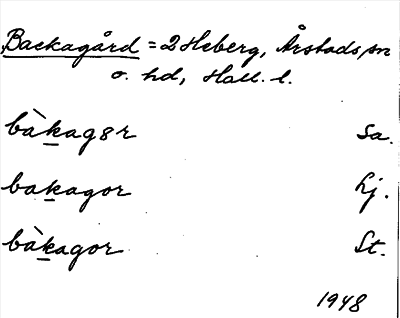 Backagård = 2 Heberg, Årstads sn
o. hd, Hall. l.
bàkagɞr Sa.
bakagor Lj.
bàkagor St.
1948